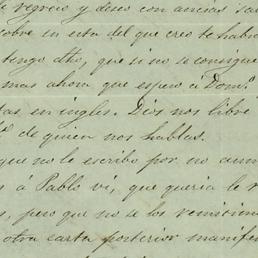 negocio y deseo con ansias sa
cobre in esta del que creo te habr
tengo dho, que si no se consigue
mas ahora que espero a Domº
tas en ingles. Dios nos libre
de quien nos hablas.
que no le escribo por no aum
s á Pablo vi, que queria le r
s, pero que no se los remitim
otra carta posterior manifes